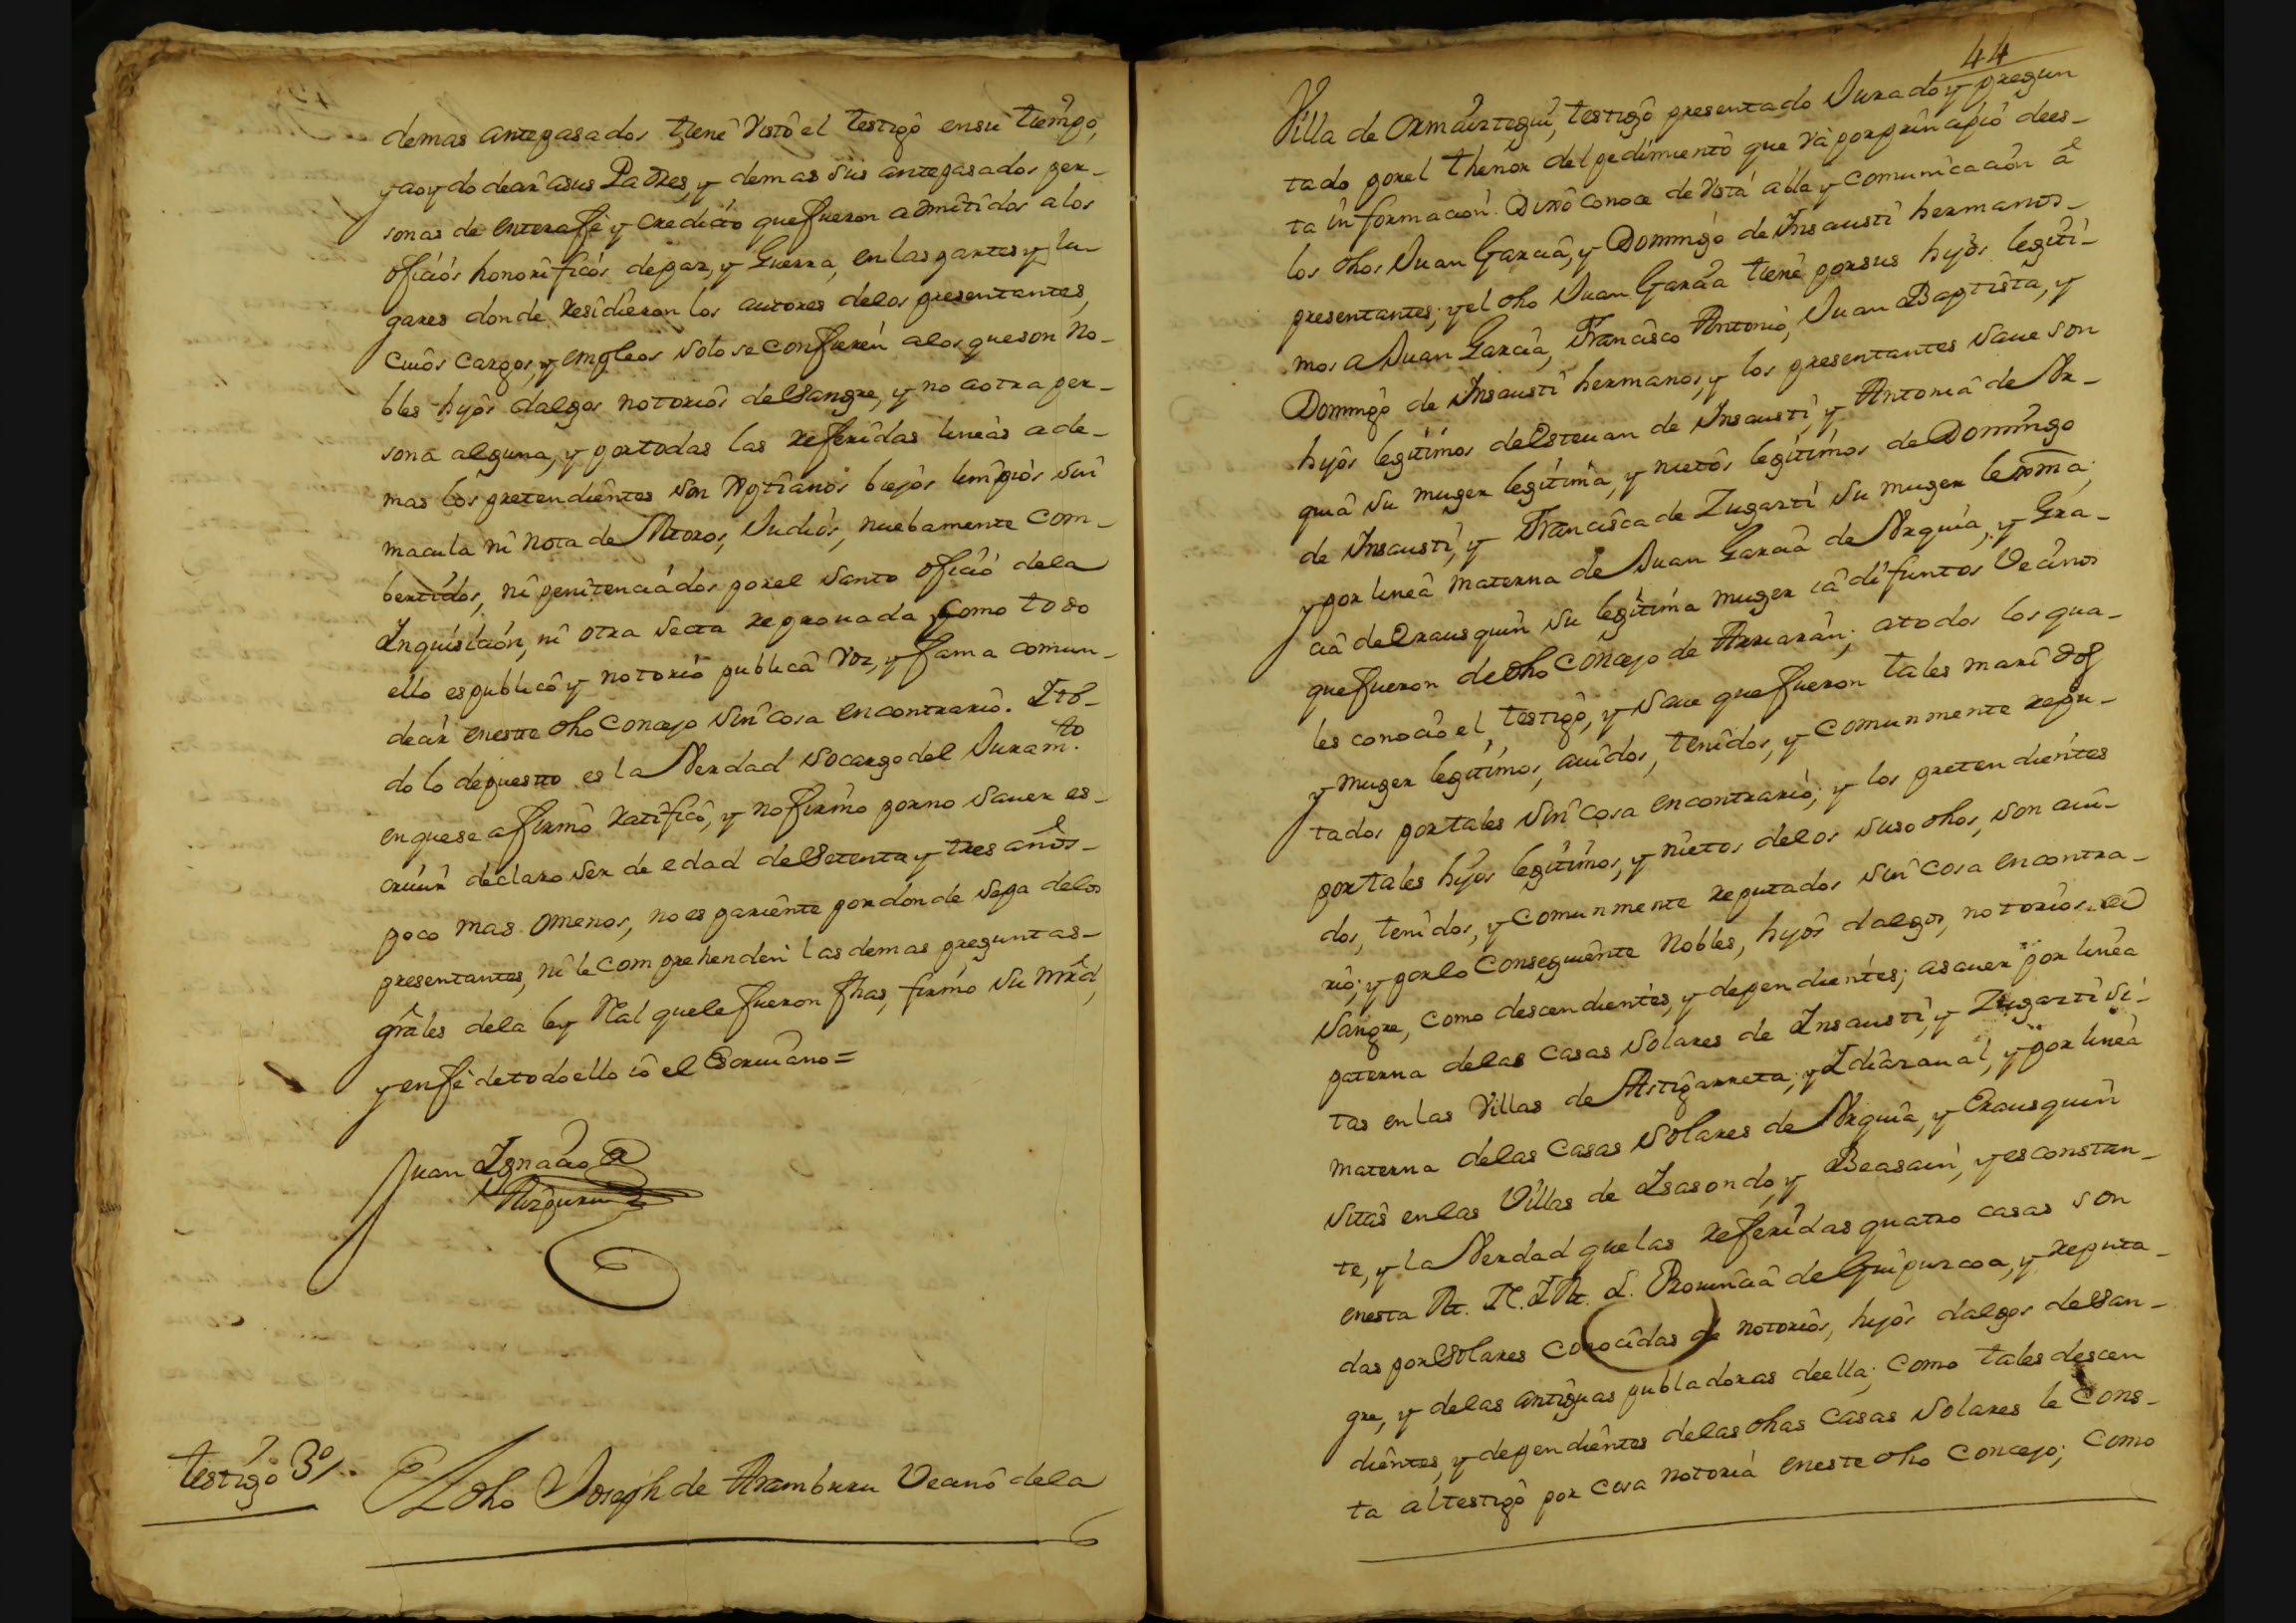 demas antepasados tiene visto el testigo en su tiempo,
y a oydo decir a sus Padres, y demas sus antepasados per-
sonas de entera fè y credicto que fueron admitidos a los
oficios honorificos de paz, y Guerra, en las partes y lu-
gares donde residieron los autores de los presentantes,
cuios cargos, y empleos solo se confieren a los que son no-
bles hijos dalgos notorios de sangre, y no a otra per-
sona alguna, y por todas las referidas lineas ade-
mas los pretendientes son Xptianos biejos limpios sin
macula ni nota de Moros, Judios, nuebamente com-
bertidos, ni penitenciados por el Santo oficio de la
Inquisicion, ni otra secta reprouada, como todo
ello es publico y notorio publica voz, y fama comun-
decir en estte dho Concejo sin cosa en contrario. I to-
do lo depuestto es la Verdad so cargo del Juram.to
en que se afirmò ratificò, y no firmò por no sauer es-
criuir declarò ser de edad de Setenta y tres años
poco mas o menos, no es pariente por donde sepa de los
presentantes, ni le comprehenden las demas preguntas-
grâles de la ley Real que le fueron fhas, firmò su mrd,
y en fè de todo ello iò el Escriuano =
Juan Ignacio de
Aizpuru
testigo 3º/..
El dho Joseph de Aramburu Vecino de la
44
Villa de Ormaiztegui, testigo presentado Jurado y pregun
tado por el thenor del pedimiento que và por principio de es-
ta informacion. Dixo conoce de vista abla y comunicacion â
los dhos Juan Garcia, y Domingo de Insausti hermanos-
presentantes; y el dho Juan Garcia tiene por sus hijos legiti-
mos a Juan Garcia, Francisco Antonio, Juan Baptista, y
Domingo de Insausti hermanos, y los presentantes saue son
hijos legitimos de Esteuan de Insausti, y Antonia de Vr-
quia su muger legitima, y nietos legitimos de Domingo
de Insausti, y Francisca de Zugasti su muger lexma;
y por linea materna de Juan Garcia de Vrquia, y Gra-
cia de Erausquin su legitima muger ià difuntos Vecinos
que fueron de dho Concejo de Arriaran; a todos los qua-
les conociò el testigo, y saue que fueron tales maridos
y muger legitimos, auidos, tenidos, y comunmente repu-
tados por tales sin cosa en contrario; y los pretendientes
por tales hijos legitimos, y nietos de los suso dhos, son aui-
dos, tenidos, y comunmente reputados sin cosa en contra-
rio; y por lo consequiente Nobles, hijos dalgos, notorios de
Sangre, como descendientes, y dependientes; a sauer por linea
paterna de las casas Solares de Insausti, y Zugasti si-
tas en las Villas de Astigarreta, y Idiazaual, y por linea
materna de las Casas Solares de Vrquia, y Erausquin
sitas en las Villas de Isasondo, y Beasain, y es constan-
te, y la Verdad que las referidas quatro casas son
en esta M. N. I M. L. Prouincia de Guipuzcoa, y reputa-
das por Solares conocidas de notorios, hijos dalgos de San-
gre, y de las antiguas publadoras de ella; como tales descen
dientes, y dependientes de las dhas Casas Solares le Cons-
ta al testigo por cosa notoria en este dho Concejo; como